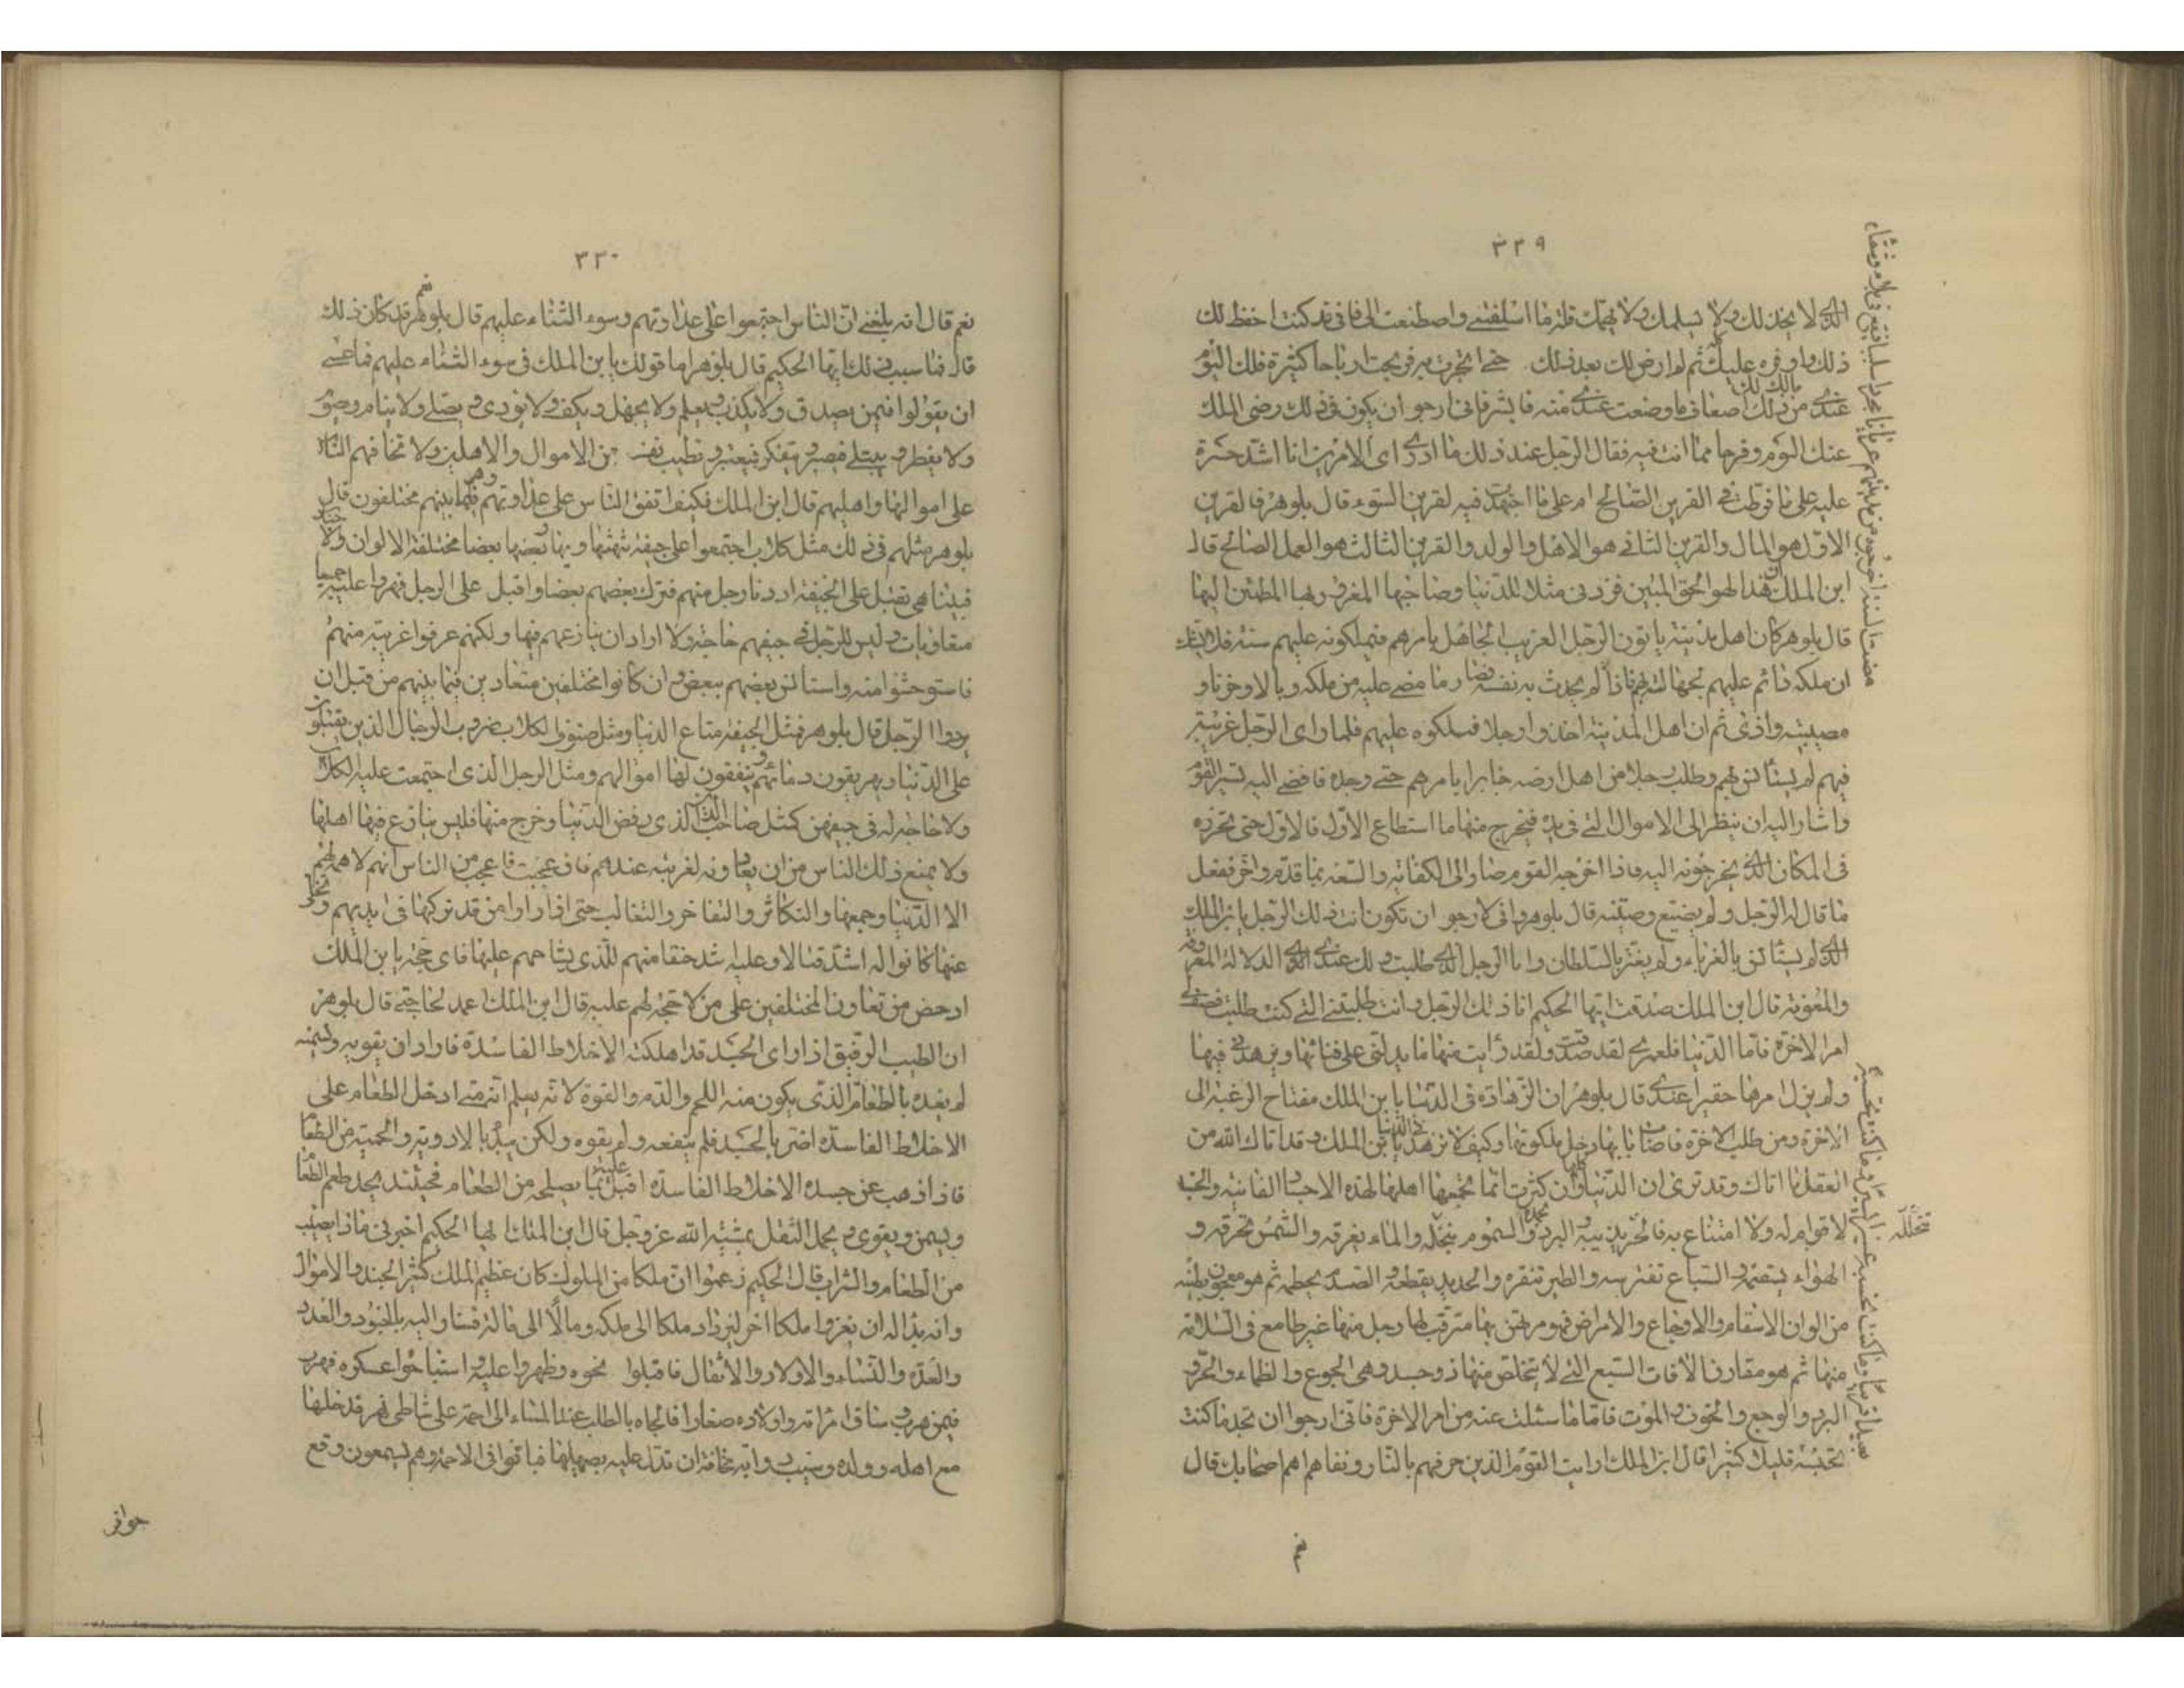 ٣٢٩
الذى لا يخذلك ولا يسلمك ولا يهمك قلة ما اسلفتنى واصطنعت الى فانى قد كنت احفظ لك
ذلك واوفره عليك ثم لم ارض لك بعد ذلك حتى اتجرت به فربحت ارباحا كثيرة فلك اليوم
عندى من ذلك اضعاف ما وضعت عندى منه فابشر فانى ارجو ان يكون فى ذلك رضى الملك
عنك اليوم وفرجا مما انت فيه فقال الرجل عند ذلك ما ادرى اى الامرين انا اشد حسرة
عليه على ما فرطت فى القرين الصالح ام على ما اجتهدت فيه لقرين السوء قال بلوهر فالقرين
الاول هو المال والقرين الثانى هو الاهل والولد والقرين الثالث هو العمل الصالح قال
ابن الملك ان هذا لهو الحق المبين فزدنى مثلا للدنيا وصاحبها المغرور بها المطمئن اليها
قال بلوهر كان اهل مدينة ياتون الرجل الغريب الجاهل بامرهم فيملكونه عليهم سنة فلا يشك
ان ملكه دائم عليهم لجهالته بهم فاذا
لم يحدث به نفسه فصار ما مضى عليه من ملكه وبالا وخزيا و
مصيبة واذى ثم ان اهل المدينة اخذوا رجلا فملكوه عليهم فلما راى الرجل غربته
فيهم لم يستانس بهم وطلب رجلا من اهل ارضه خابرا بامرهم حتى وجده فافضى اليه بسر القوم
واشار اليه ان ينظر الى الاموال التى فى يده فيخرج منها ما استطاع الاول فالاول حتى يحرزه
فى المكان الذى يخرجونه اليه فاذا اخرجه القوم صار الى الكفاية والسعة بما قدم واحرز ففعل
ما قال له الرجل ولم يضيع وصيته قال بلوهر وانى لارجو ان تكون انت ذلك الرجل يابن الملك
الذى لم يستانس بالغرباء ولم يغتر بالسلطان وانا الرجل الذى طلبت ولك عندى الدلالة والمعرفة
والمعونة قال ابن الملك صدقت ايها الحكيم انا ذلك الرجل وانت طلبتى التى كنت طلبت فصف لى
امر الاخرة فاما الدنيا فلعمرى لقد صدقت ولقد رأيت منها ما يدلنى على فنائها ويزهدنى فيها
ولم يزل امرها حقيرا عندى قال بلوهر ان الزهادة فى الدنيا يابن الملك مفتاح الرغبة الى
الاخرة ومن طلب الاخرة فاصاب بابها دخل ملكوتها وكيف لا تزهد فى الدنيا يابن الملك وقد اتاك الله من
العقل ما اتاك وقد ترى ان الدنيا وان كثرت انما يجمعها اهلها لهذه الاجساد الفانية والجسد
لا قوام له ولا امتناع به فالحر يذيبه والبرد يجمده والسموم يتخلله والماء يغرقه والشمس تحرقه و
الهواء يسقمه والسباع تفترسه والطير تنقره والحديد يقطعه والصدم يحطمه ثم هو معجون بطينة
من الوان الاسقام والاوجاع والامراض فهو مرتهن بها مترقب لها وجل منها غير طامع فى السلامة
منها ثم هو مقارن الآفات السبع التى لا يتخلص منها ذو جسد وهى الجوع والظماء والحر و
البرد والوجع والخوف والموت فاما ما سئلت عنه من امر الاخرة فانى ارجو ان تجد ما كنت
تحسبه قليلا كثيرا قال ابن الملك ارايت القوم الذين حرقهم بالنار ونفاهم اهم اصحابك قال
تتخلله
نعم
٣٣٠
نعم قال انه بلغنى ان الناس اجتمعوا على عداوتهم وسوء الثناء عليهم قال بلوهر نعم قد كان ذلك
قال فما سبب ذلك ايها الحكيم قال بلوهر اما قولك يابن الملك فى سوء الثناء عليهم فما عسى
ان يقولوا فيمن يصدق ولا يكذب ويعلم ولا يجهل ويكف ولا يؤذى ويصلى ولا ينام ويصوم
ولا يفطر ويبتلى فيصبر ويتفكر فيعتبر ويطيب نفسه عن الاموال والاهلين ولا تخافهم الناس
على اموالهم واهليهم قال ابن الملك فكيف اتفق الناس على عداوتهم وهم فيما بينهم مختلفون قال
بلوهر مثلهم فى ذلك مثل كلاب اجتمعوا على جيفة تنهشها ويهار بعضها بعضا مختلفة الالوان والاجناس
فبينا هى تقبل على الجيفة اذ دنا رجل منهم فترك بعضهم بعضا واقبل على الرجل فهروا عليه جميعا
متعاويات وليس للرجل فى جيفهم حاجة ولا اراد ان ينازعهم فيها ولكنهم عرفوا غربته منهم
فاستوحشوا منه واستانس بعضهم ببعض وان كانوا مختلفين متعادين فيما بينهم من قبل ان
يردوا الرجل قال بلوهر فمثل الجيفة متاع الدنيا ومثل صنوف الكلاب ضروب الرجال الذين يقتتلون
على الدنيا ويهريقون دمائهم وينفقون لها اموالهم ومثل الرجل الذى اجتمعت عليه الكلاب
ولا حاجة له فى جيفهن كمثل صاحب الدين الذى رفض الدنيا وخرج منها فليس ينازع فيها اهلها
ولا يمنع ذلك الناس من ان يعاونه لغربته عندهم فان عجبت فاعجب من الناس انهم لا همة لهم
الا الدنيا وجمعها والتكاثر والتفاخر والتغالب حتى اذا راوا من قد تركها فى ايديهم وتخلى
عنها كانوا له اشد قتالا وعليه اشد حنقا منهم للذى يشاحهم عليها فاى حجة يابن الملك
ادحض من تعاون المختلفين على من لا حجة لهم عليه قال ابن الملك اعمد لحاجتى قال بلوهر
ان الطبيب الرفيق اذا راى الجسد قد اهلكته الاخلاط الفاسدة فاراد ان يقويه ويسمنه
لم يغده بالطعام الذى يكون منه اللحم والدم والقوة لانه يعلم انه متى ادخل الطعام على
الاخلاط الفاسدة اضر بالجسد فلم ينفعه ولم يقوه ولكن يبدأ بالادوية والحمية من الطعام
فاذا ذهب عن جسده الاخلاط الفاسدة اقبل عليه بما يصلحه من الطعام فحينئذ يجد طعم الطعام
ويسمن ويقوى ويحمل الثقل بمشية الله عز وجل قال ابن الملك ايها الحكيم اخبرنى ماذا تصيب
من الطعام والشراب قال الحكيم زعموا ان ملكا من الملوك كان عظيم الملك كثير الجند والاموال
وانه بدا له ان يغزوا ملكا اخر ليزداد ملكا الى ملكه ومالا الى ماله فسار اليه بالجنود والعدد
والعدة والنساء والاولاد والاثقال فاقبلوا نحوه وظهروا عليه واستباحوا عسكره فهرب
فيمن هرب وساق امراته واولاده صغارا فالجاه بالطلب عند المساء الى اجمة على شاطى نهر فدخلها
مع اهله وولده وسيب دوابه مخافة ان تدل عليه بصهيلها فباتوا فى الاجمة وهم يسمعون وقع
حوافر